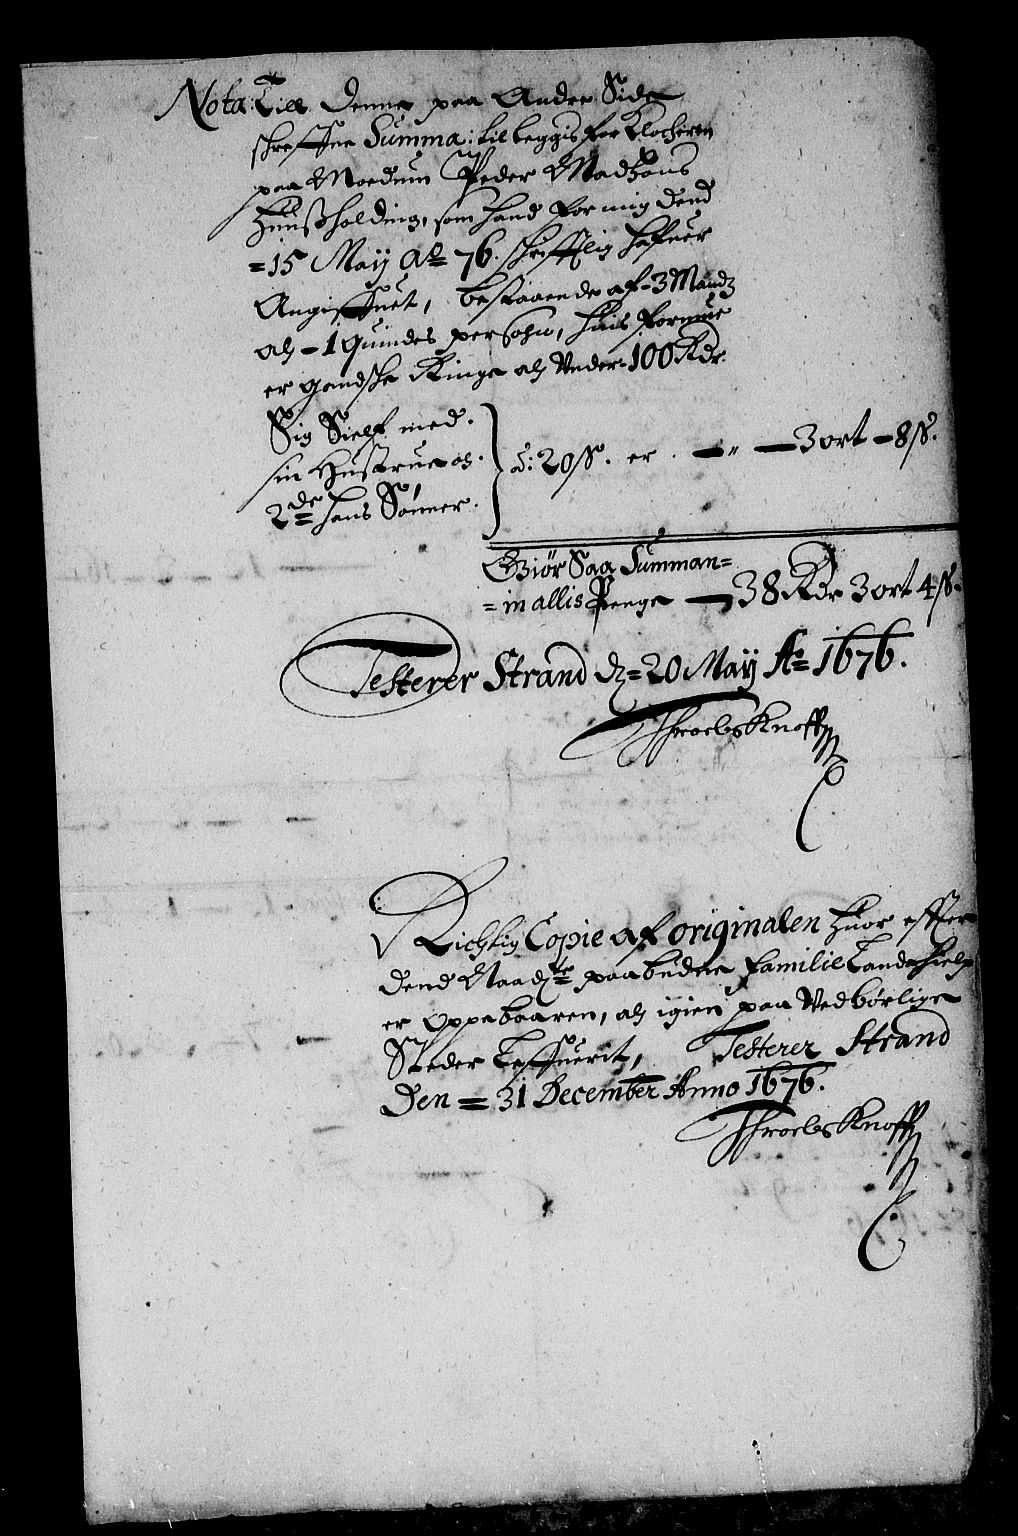 Nota: Till denne paa Andre Side
schreffne Summa: til leggis for Klocheren
paa Moedum Peder Madtzøns
Huusholding, som hand for mig dend
=15 Maij Ao 76. schrifftlig hafuer
Angiffuet, bestaaende af - 3 Mandz
och - 1 Quindes persohn, hans formue
er gandsche Ringe och Under - 100 Rdr.
Sig Sielf med
sin Hustrue och
2de hans Sønner.
á: 20 ß. er. — " — 3 ort — 8 ß.
Giør Saa Summan=
= in allis Penge — 38 Rdr 3 ort 4 ß.
Testerer Strand d. = 20 Maij Ao = 1676.
Throels Knoff
Richtig Copie af originalen huor effter
dend Naadste paabudne familie Lande hielp
er Oppebaaren, och igien paa Vedbørlige
Steder Leffuerit, Testerer Strand
Den = 31 December Anno 1676.
Throels Knoff